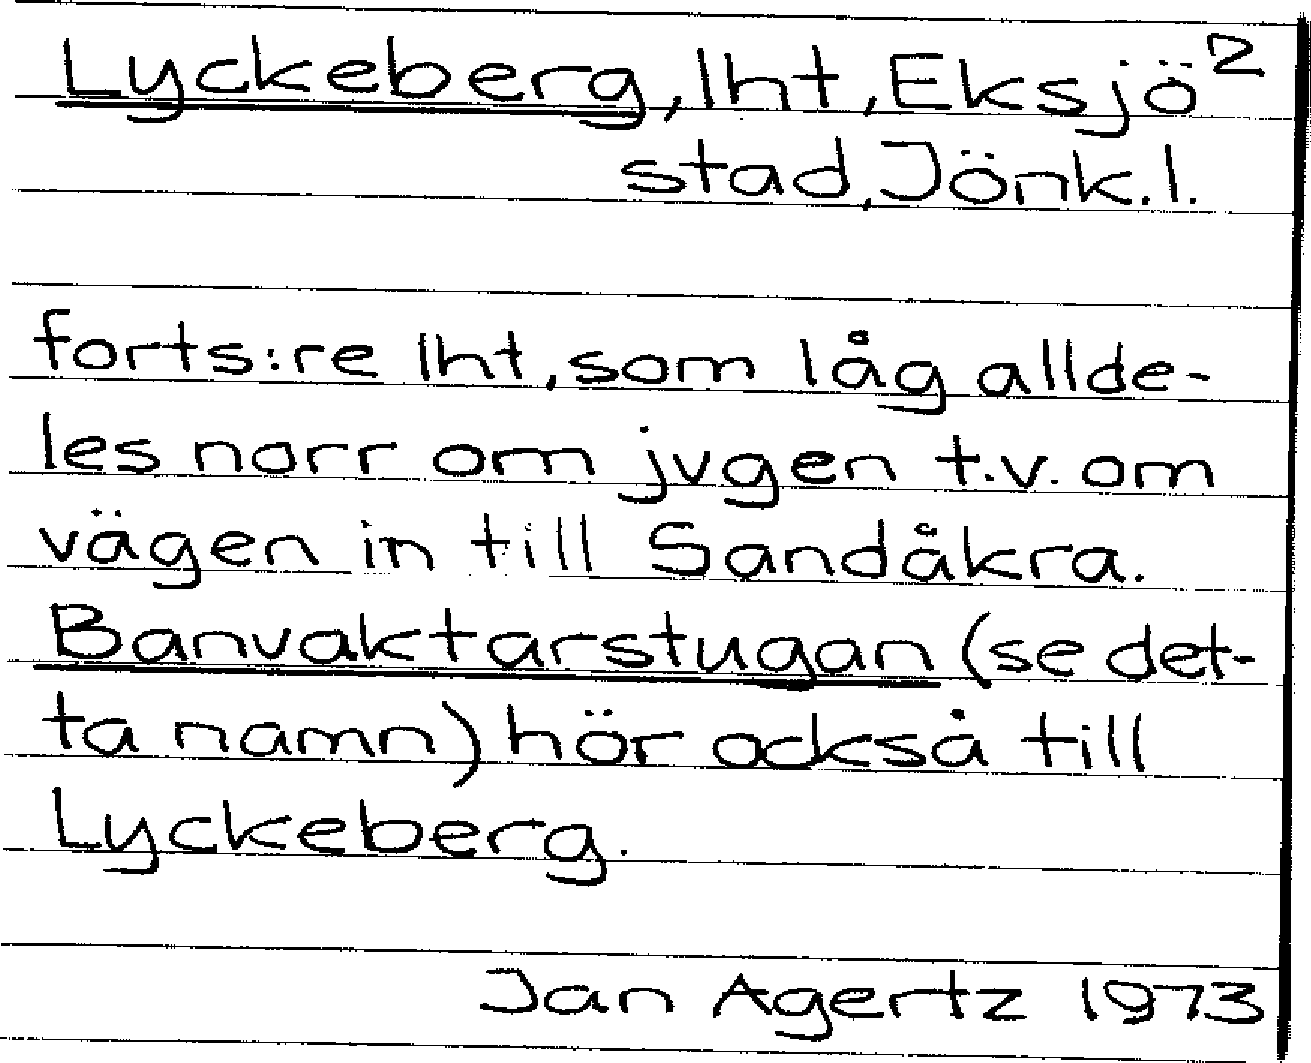 Lyckeberg, lht, Eksjö 2
stad, Jönk.l.
forts:re lht, som låg allde-
les norr om jvgen t.v. om
vägen in till Sandåkra.
Banvaktarstugan (se det-
ta namn) hör också till
Lyckeberg.
Jan Agertz 1973